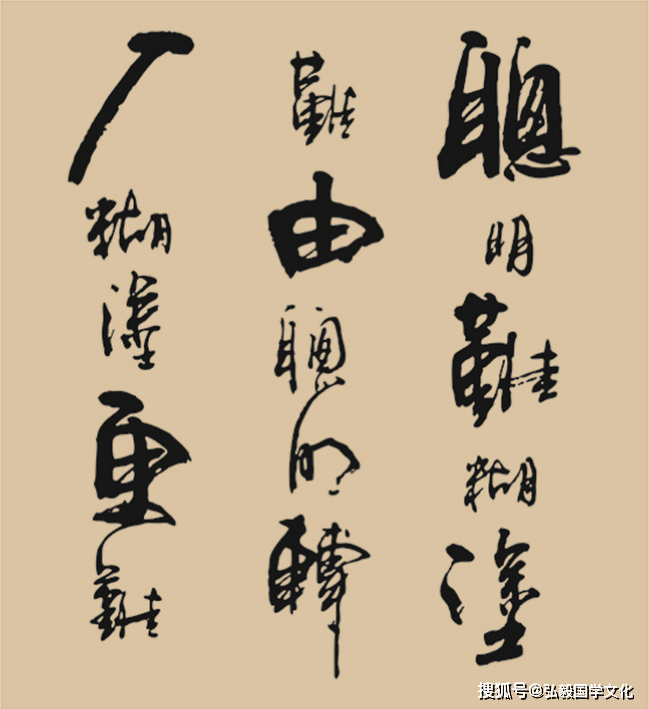 聰明難糊塗
難由聰明轉
入糊塗更難
搜狐号@弘毅国学文化